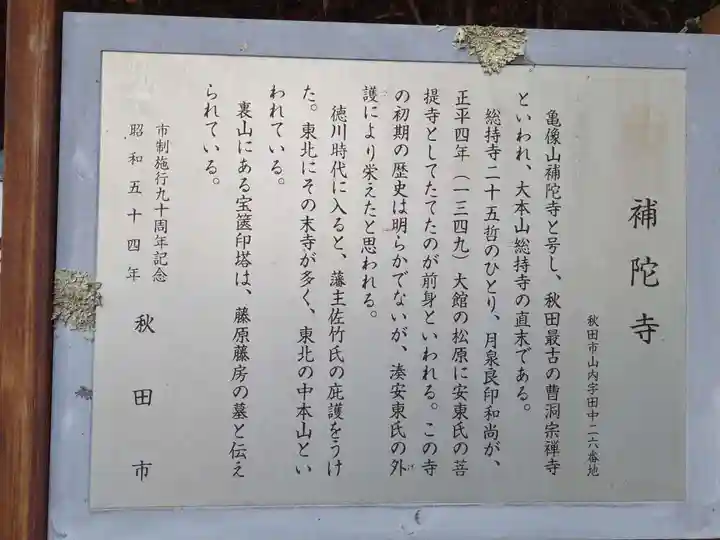 補陀寺
秋田市山内字田中二六番地
亀像山補陀寺と号し、秋田最古の曹洞宗禅寺
といわれ、大本山総持寺の直末である。
総持寺二十五哲のひとり、月泉良印和尚が、
正平四年（一三四九）大館の松原に安東氏の菩
提寺としてたてたのが前身といわれる。この寺
の初期の歴史は明らかでないが、湊安東氏の外
護により栄えたと思われる。
徳川時代に入ると、藩主佐竹氏の庇護をうけ
た。東北にその末寺が多く、東北の中本山とい
われている。
裏山にある宝篋印塔は、藤原藤房の墓と伝え
られている。
市制施行九十周年記念
昭和五十四年
秋田市